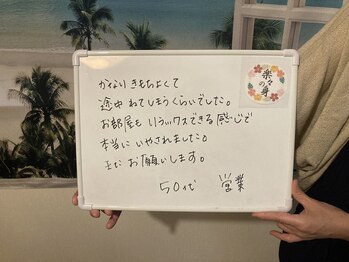 かなりきもちよくて
途中ねてしまうくらいでした。
お部屋もリラックスできる感じで
本当にいやされました。
またお願いします。
50代 営業
楽々の舞